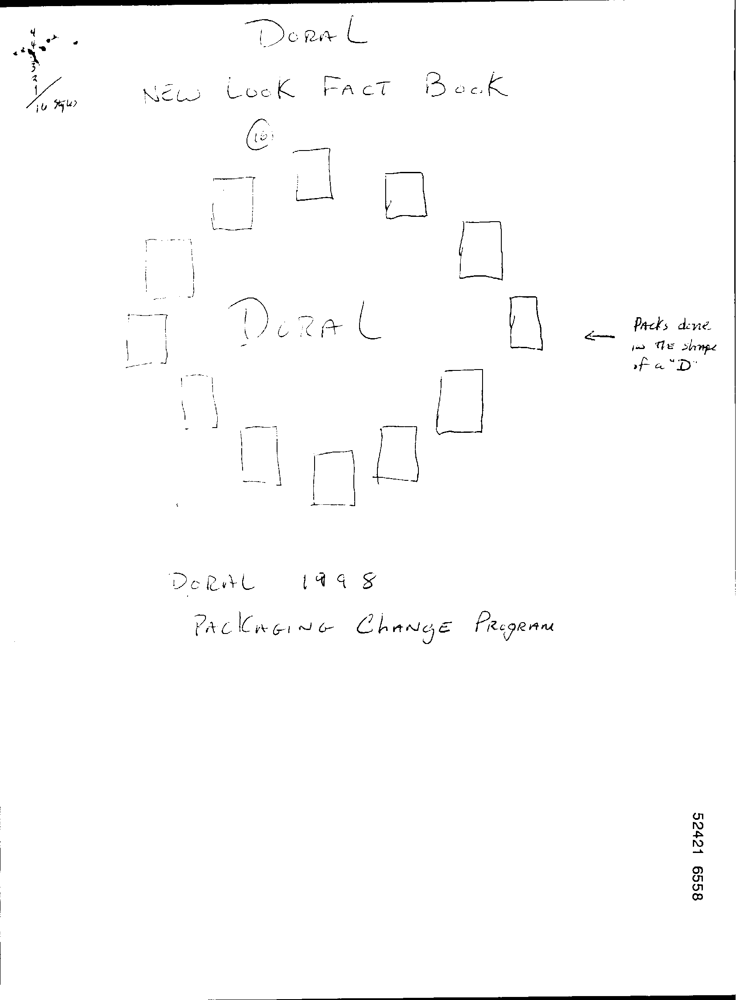 DORAL
NEW LOOK FACT BOOK
16
DORAL
← Packs done
in THE shape
of a "D"
DORAL 1998
PACKAGING CHANGE PROGRAM
52421 6558